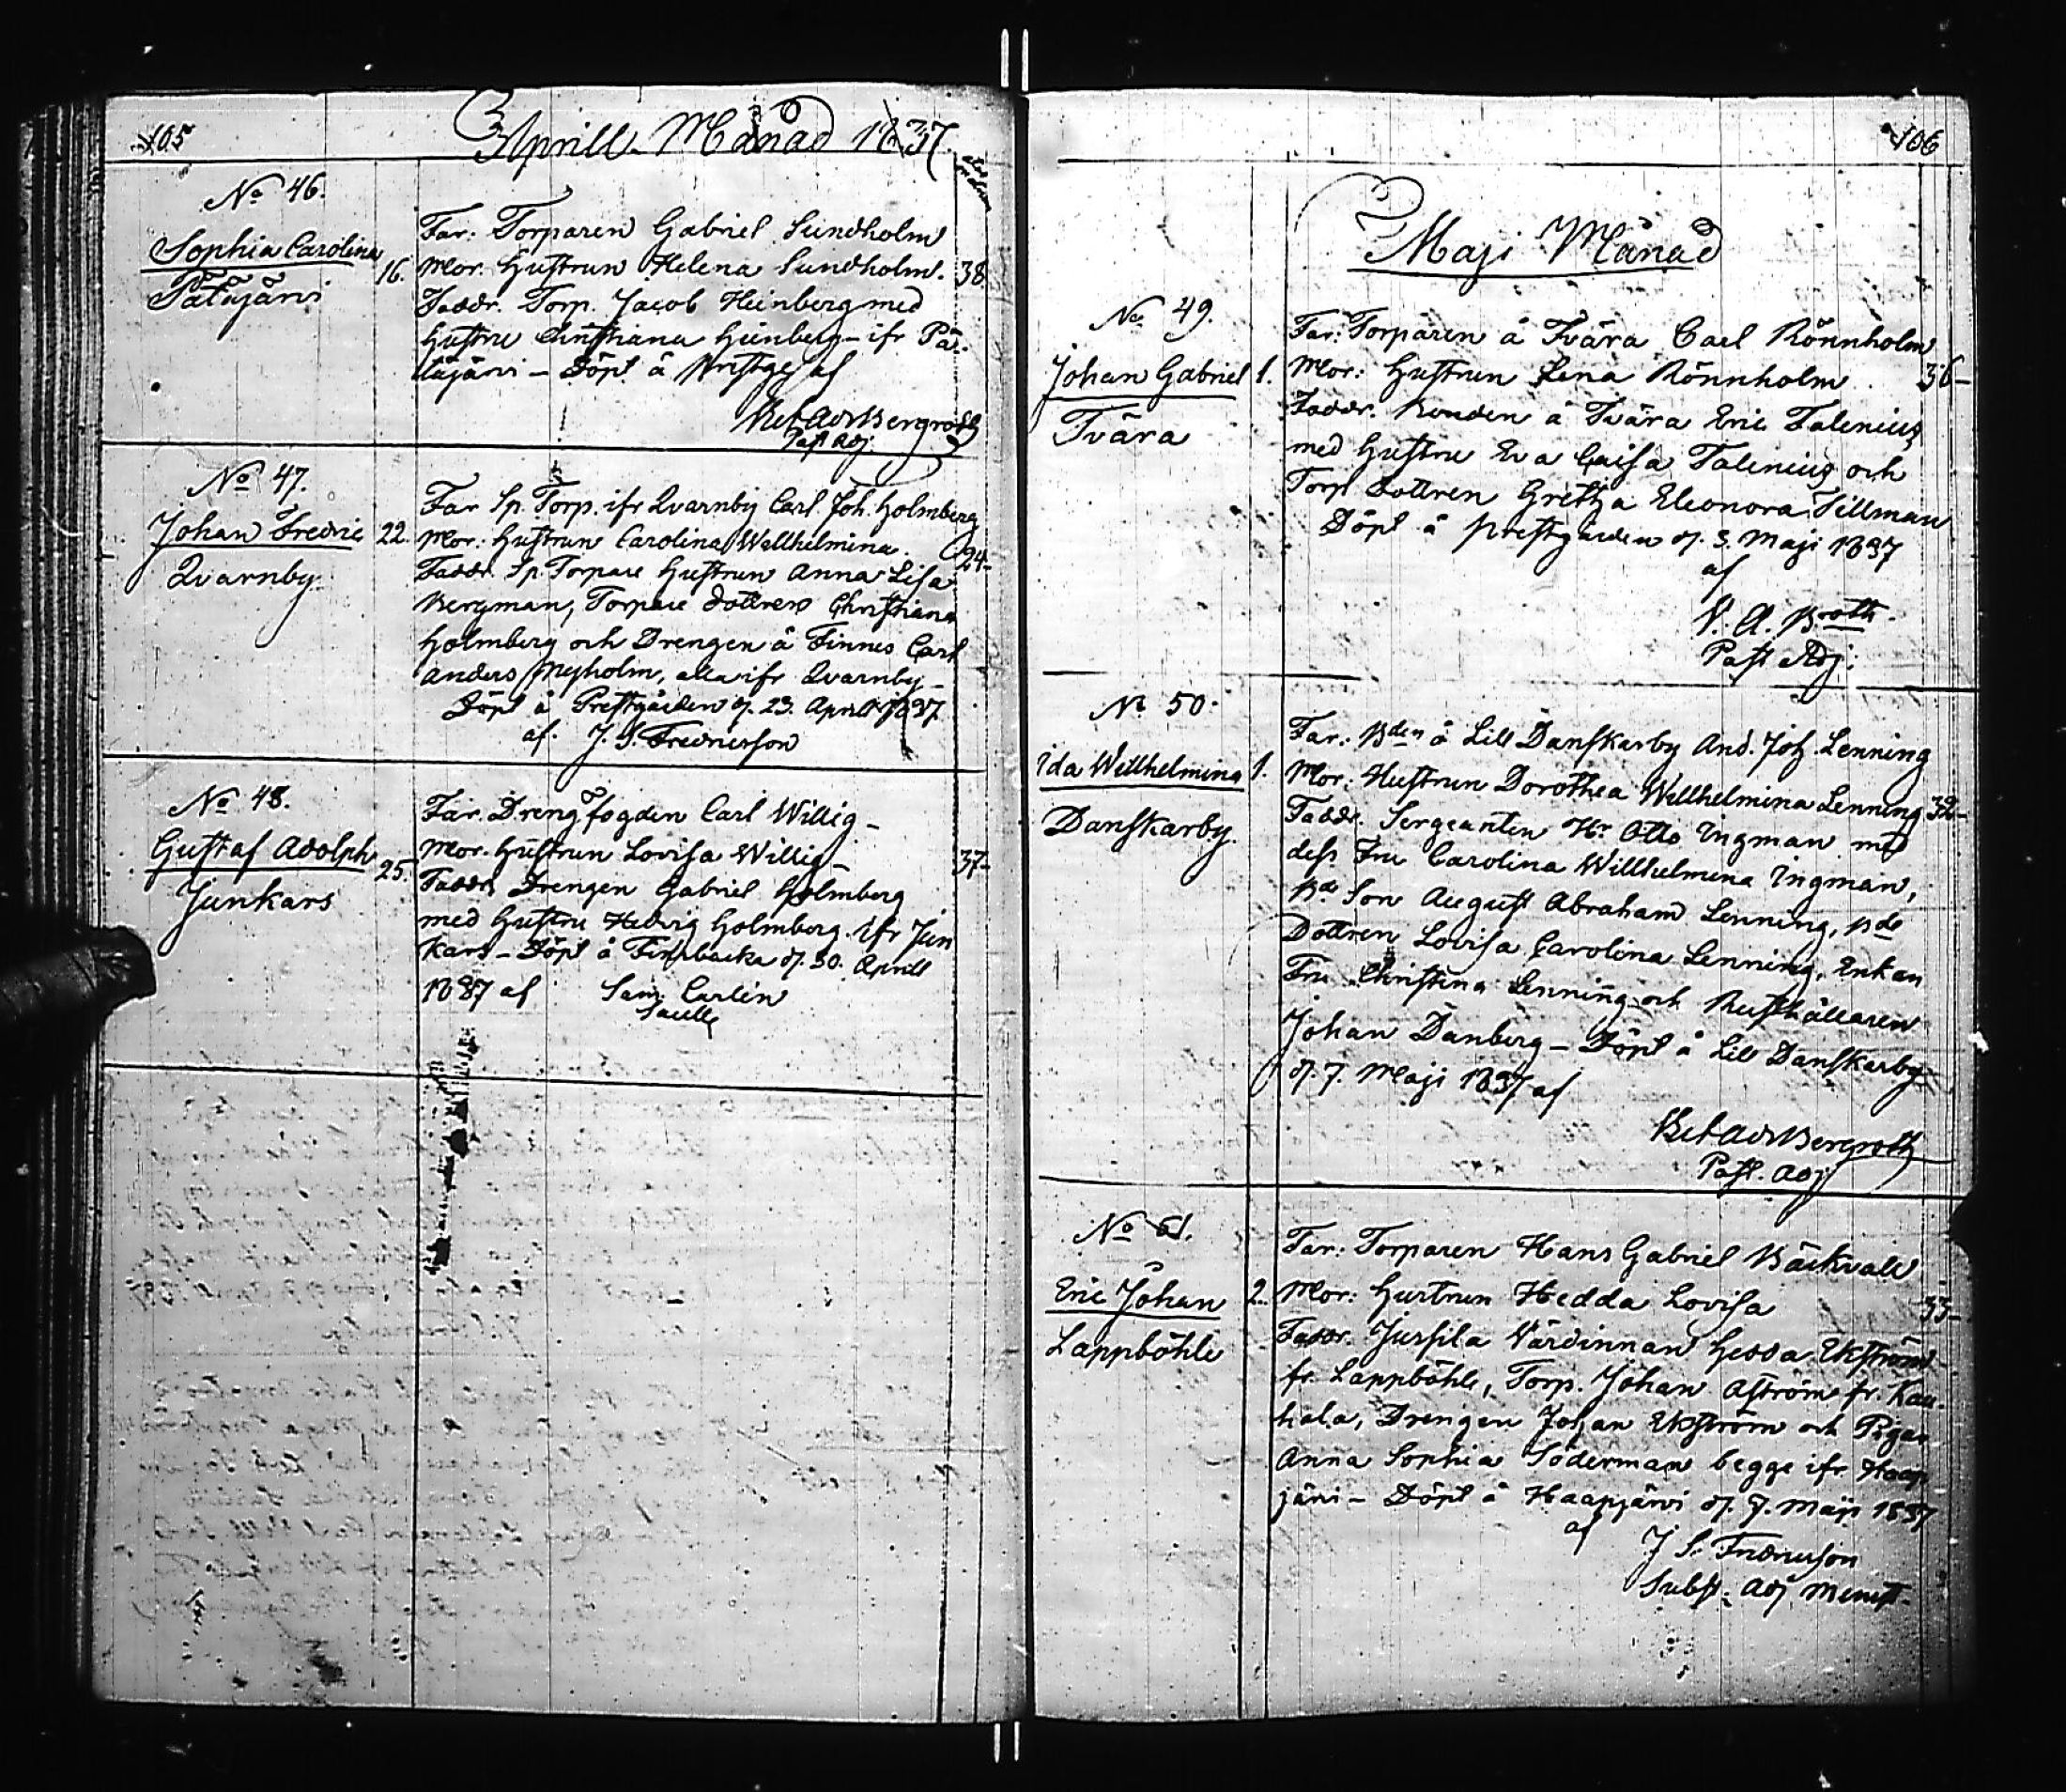 105
Aprill Månad 1837.
No 46.
Sophia Carolina 16.
Patajärvi
Far: Torparen Gabriel Sundholm
Mor. Hustrun Helena Sundholm. 38.
Faddr. Torp. Jacob Heinberg med
Hustru Christiana Heinberg ifr Pa-
tajärvi – Döpt å Prestg. af
Bergroth
Past. Adj.
No 47.
Johan Fredric 22.
Qvarnby
Far Sp. Torp. ifr Qvarnby Carl Joh. Holmberg
Mor: Hustrun Carolina Wellhelmina. 24–
Faddr. Sp. Torpare Hustrun Anna Lisa
Bergman, Torpare dottren Christiana
Holmberg och Drengen å Finnes Carl
Anders Nyholm, alla ifr Qvarnby –
Döpt å Prestgården d. 23. Aprill 1837
af. J. S. Fredricsson
No 48.
Gustaf Adolph 25.
Junkars
Far. Drengfogden Carl Willig –
Mor. Hustrun Lovisa Willig – 37–
Faddr Drengen Gabriel Holmberg
med Hustru Hedvig Holmberg ifr Jun
kars – Döpt å d. 30. Aprill
1837 af Sam. Carlén
106
Maji Månad
No 49.
Johan Gabriel 1.
Tvära
Far: Torparen å Tvära Carl Rönnholm
Mor: Hustrun Lena Rönnholm. 36–
Faddr. Bonden å Tvära Eric Talenius
med Hustru Eva Caisa Talenius och
Torp. dottren Gretha Eleonora Tillman
Döpt å Prestgården d. 3. Maji 1837
af
A. B:roth.
Past Adj:
No 50.
Ida Wellhelmina 1.
Danskarby.
Far: Bden å Lill Danskarby And. Joh. Lenning
Mor: Hustrun Dorothea Wellhelmina Lenning 39–
Faddr. Sergeanten Hr Otto Ingman med
dess Fru Carolina Willhelmina Ingman,
Bde Son August Abraham Lenning, Bde
Dottren Lovisa Carolina Lenning, Enkan
Fru Christina Lenning och Rusthållaren
Johan Danberg – Döpt å Lill Danskarby
d. 7. Maji 1837 af
Bergroth
Past. Adj
No 51.
Eric Johan 2.
Lappböhle
Far: Torparen Hans Gabriel Bäckvall
Mor: Hustrun Hedda Lovisa 33–
Faddr. Jursila Värdinnan Hedda Ekström
fr. Lappböhle, Torp. Johan Åström fr. Kau-
hala, Drengen Johan Ekström och Pigan
Anna Sophia Söderman begge ifr Haap
järvi – Döpt å Haapjärvi d. 7. Maji 1837
af
J S. Fredricsson
Subst: Adj Minist.